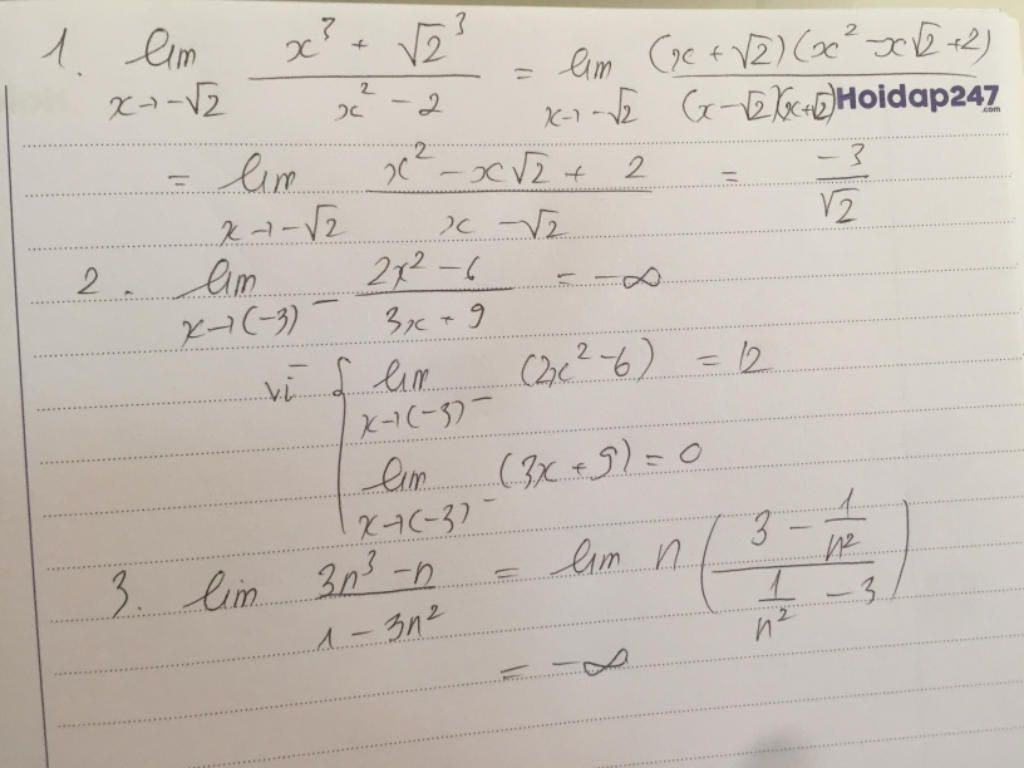 1. lim x→-√2 (x³ + √2³)/(x² - 2) = lim x→-√2 (x + √2)(x² - x√2 + 2)/(x - √2)(x + √2) Hoidap247.com
= lim x→-√2 (x² - x√2 + 2)/(x - √2) = -3/√2
2. lim x→(-3)⁻ (2x² - 6)/(3x + 9) = -∞
vì { lim x→(-3)⁻ (2x² - 6) = 12
lim x→(-3)⁻ (3x + 9) = 0
3. lim (3n³ - n)/(1 - 3n²) = lim n ((3 - 1/n²)/(1/n² - 3))
= -∞